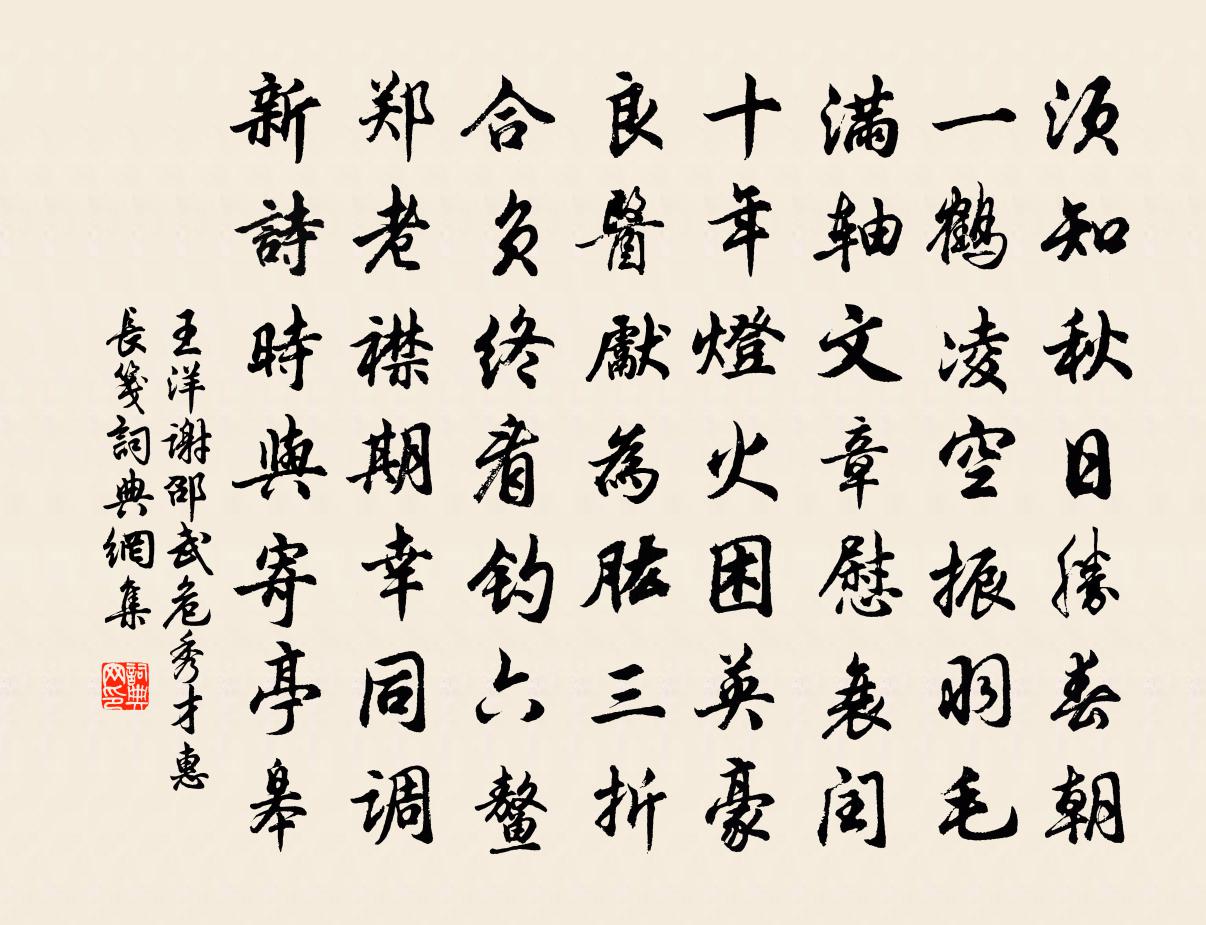 须知秋日勝春朝
一鹤凌空振羽毛
滿轴文章慰衰闰
十年燈火困英豪
良醫獻為肱三折
合负终看钓六鳌
郑老襟期幸同调
新詩時與寄亭皋
王洋谢邵武危秀才惠
長箋詞典網集
詞典网印